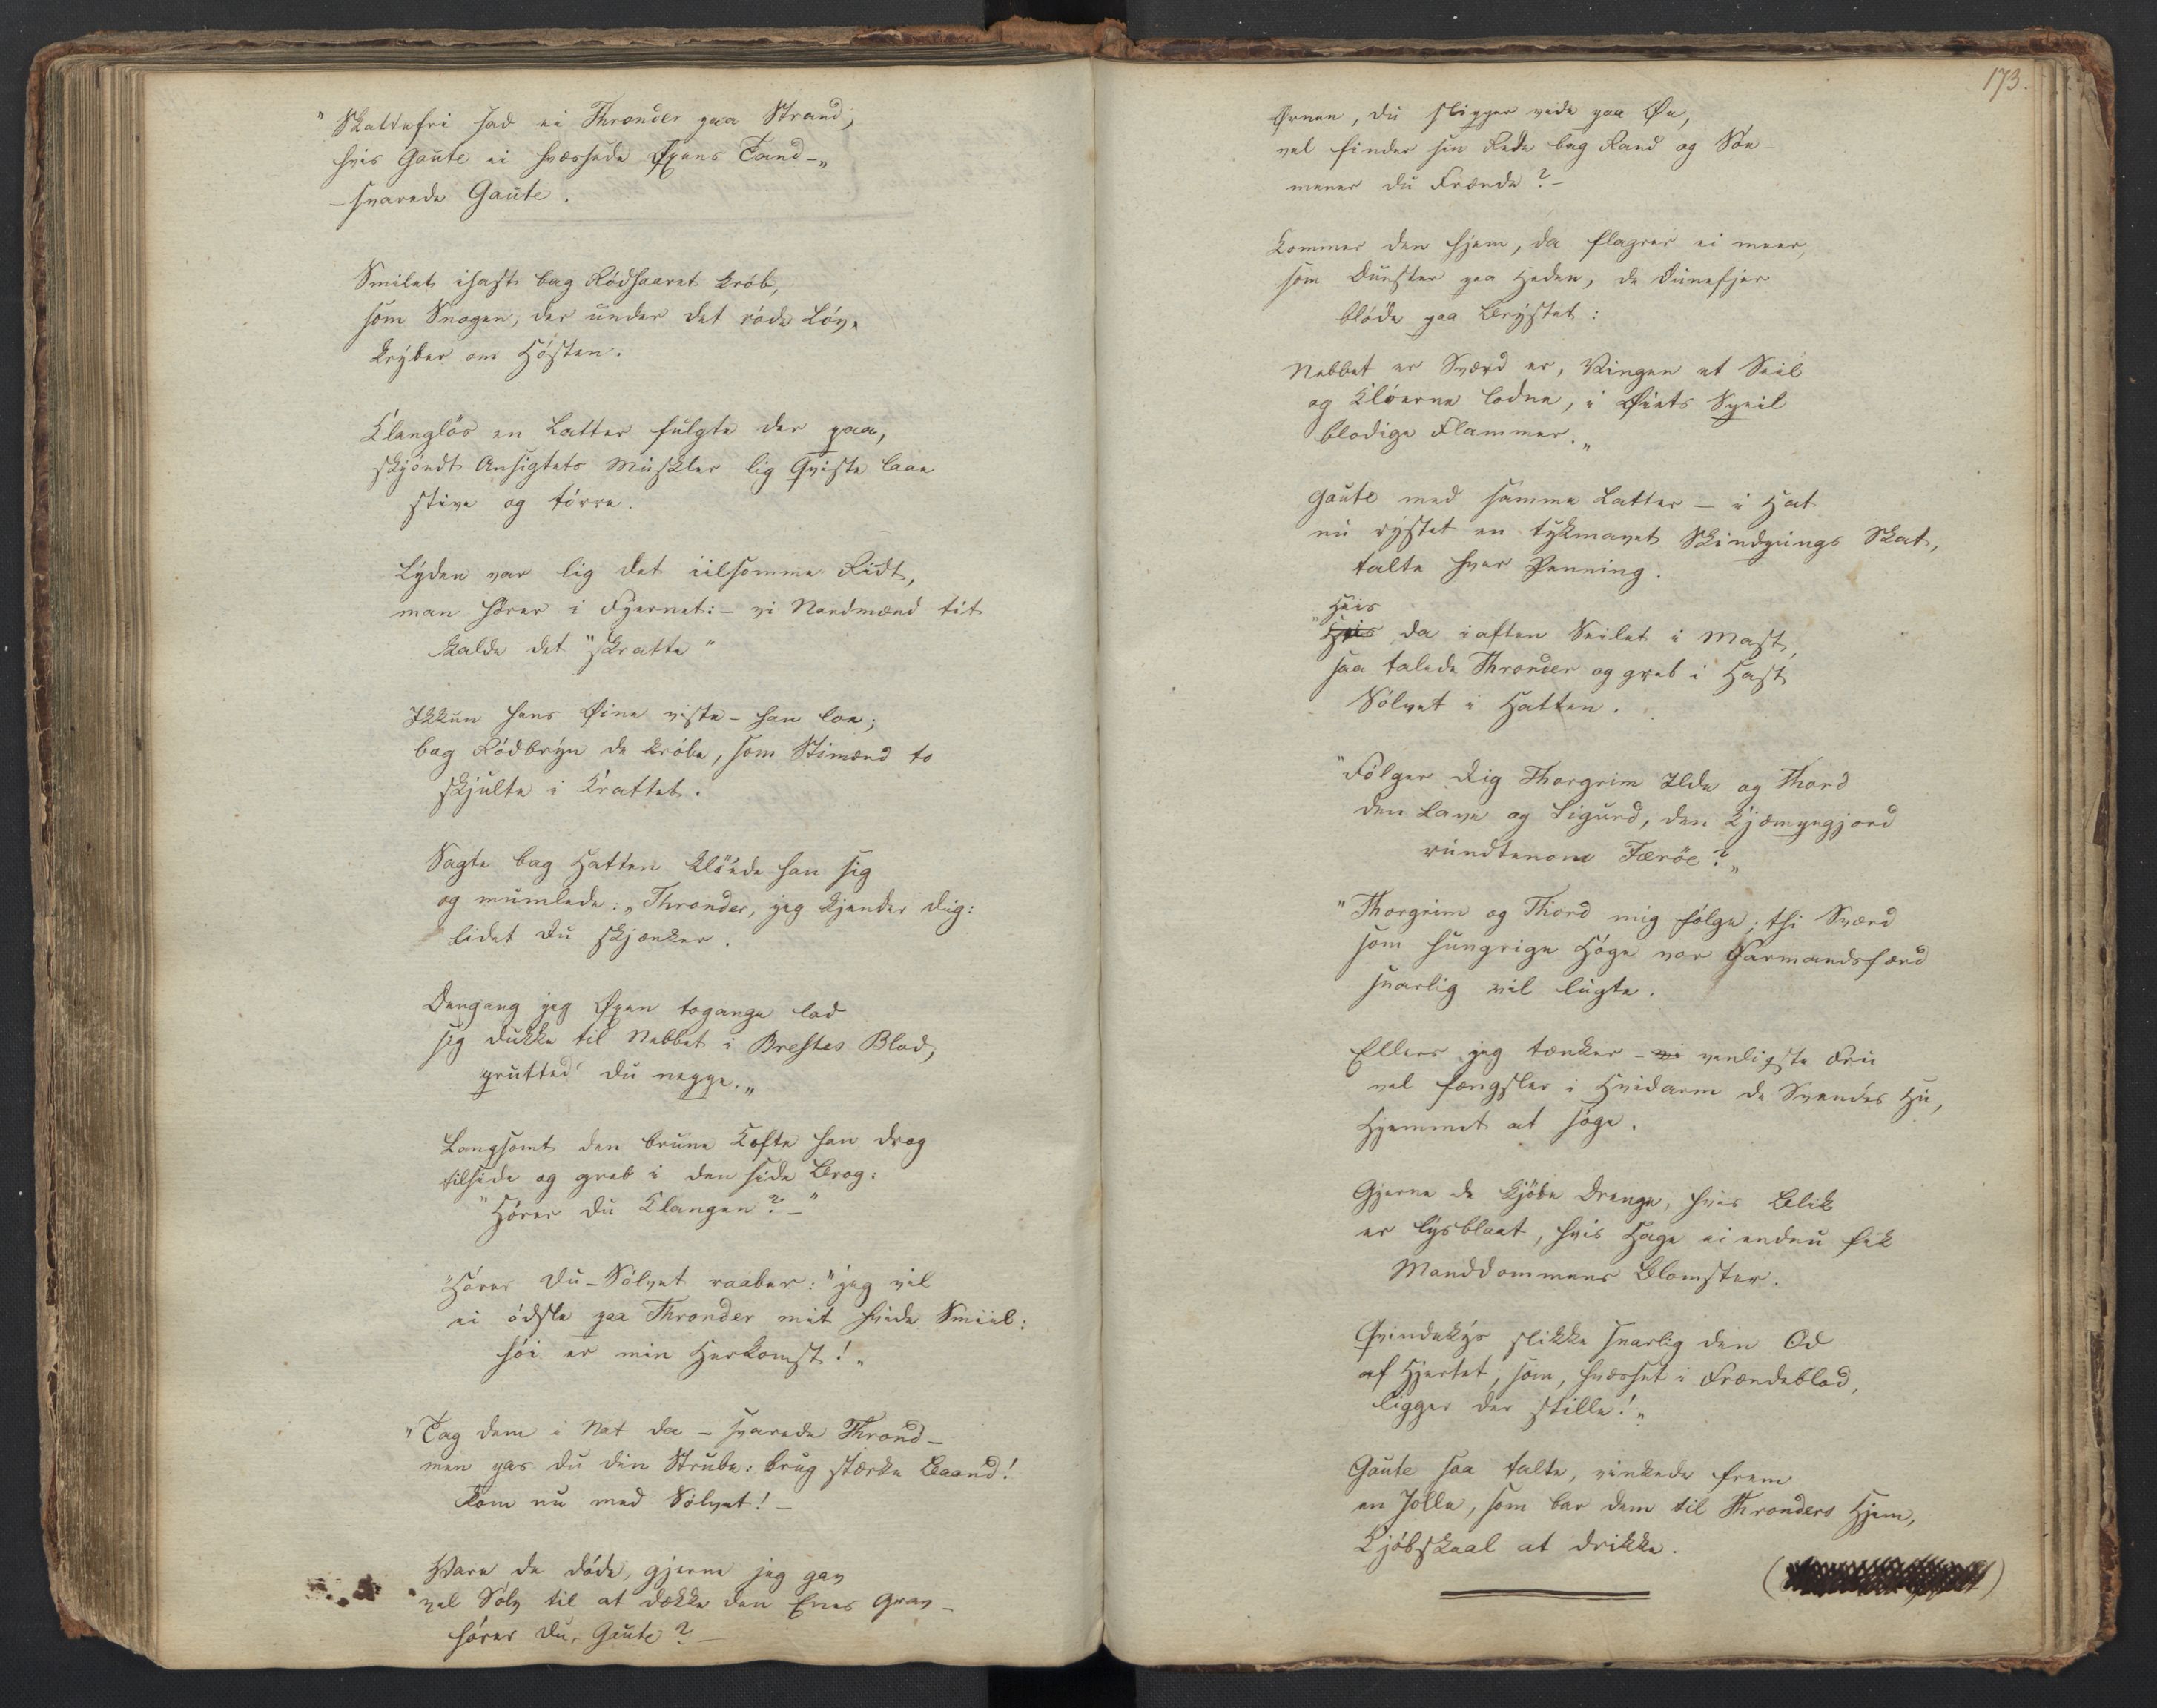 "Skattefri sad ei Thronder paa Strand,
hvis Gaute ei hvæssede Øxens Tand-"
- svarede Gaute.
Smilet ihast bag Rødhaaret krøb,
som Snogen, der under det røde Løv,
kryber om Høsten.
Klangløs en Latter fulgte der paa,
skjøndt Ansigtets Muskler lig Qviste laae
stive og tørre.
Lyden var lig det iilsomme Ridt,
man hører i Fjernet: - vi Nordmænd tit
kalde det "skratte"
Ikkun hans Øine viste - han loe;
bag Rødbryn de krøbe, som Stimænd to
skjulte i Krattet.
Sagte bag Hatten kløede han sig
og mumlede: "Thronder, jeg kjender dig:
lidet du skjænker.
Dengang jeg Øxen togange lod
sig dukke til Nebbet i Brestes Blod,
prutted' du neppe."
Langsomt den brune Kofte han drog
tilside og greb i den side Brog:
"Hører du Klangen? -"
"Hører du - Sølvet raaber: "jeg vil
ei ødsle paa Thronder mit hvide Smiil:
høi er min Herkomst!"
"Tag dem i Nat da - svarede Thrond -
men pas du din Strube: brug stærke Baand!
Kom nu med Sølvet! -
Vare de døde, gjerne jeg gav
vel Sølv til at dække den Enes Grav -
hører du, Gaute? -
173.
Ørnen, du slipper vide paa Øe,
vel finder sin Rede bag Rand og Söe -
mener du Frænde? -
Kommer den hjem, da flagrer ei meer,
som Dunster paa Heden, de Dunefjer
bløde paa Brystet:
Nebbet er Sværd er, Vingen et Seil
og Kløerne lodne, i Øiets Speil
blodige Flammer."
Gaute med samme Latter - i Hat
nu rystet en tykmavet Skindpungs Skat,
talte hver Penning.
Heis
"Heis da iaften Seilet i Mast,
saa talede Thronder og greb i Hast
Sølvet i Hatten.
"Følger dig Thorgrim Ilde og Thord
den Lave og Sigurd, den Kjæmpegjord
rundtenom Færöe?"
"Thorgrim og Thord mig følge; thi Sværd
som hungrige Høge vor Farmandsfærd
snarlig vil lugte.
Ellers jeg tænker - vi venligste Fru
vel fængsler i Hvidarm de Svendes Hu,
Hjemmet at søge.
Gjerne de kjøbe Drenge, hvis Blik
er lysblaat, hvis Hage ei endnu fik
Manddommens Blomster.
Qvindekys slikke snarlig den Od
af Hjertet, som, hvæsset i Frændeblod,
ligger der stille!"
Gaute saa talte, vinkede frem
en Jolle, som bar dem til Thronders Hjem,
Kjøbskaal at drikke.